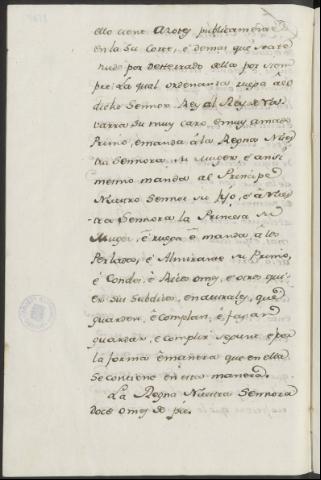 ello cient Azotes publicamente
en la su Corte, é demas que sea te
nudo por desterrado della por siem
pre: La qual ordenanza ruega ael
dicho Sennor Rey al Rey de Na
varra su muy caro, é muy amado
Primo, é manda á la Reyna Nues
tra Sennora su muger, é ansi
mesmo manda al Principe
Nuestro Sennor su fijo, é á Nues
tra Sennora la Princesa su
Muger, é ruega é manda á los
Perlados, é Almirante su Primo,
é Condes, é Ricos omes, é otros qui
er sus subditos, é naturales, que
guarden, é complan, é fagan
guardar, é complir segunt é por
la forma é manera que en ella
se contiene en esta manera.
La Reyna Nuestra Sennora
doce omes de pie.